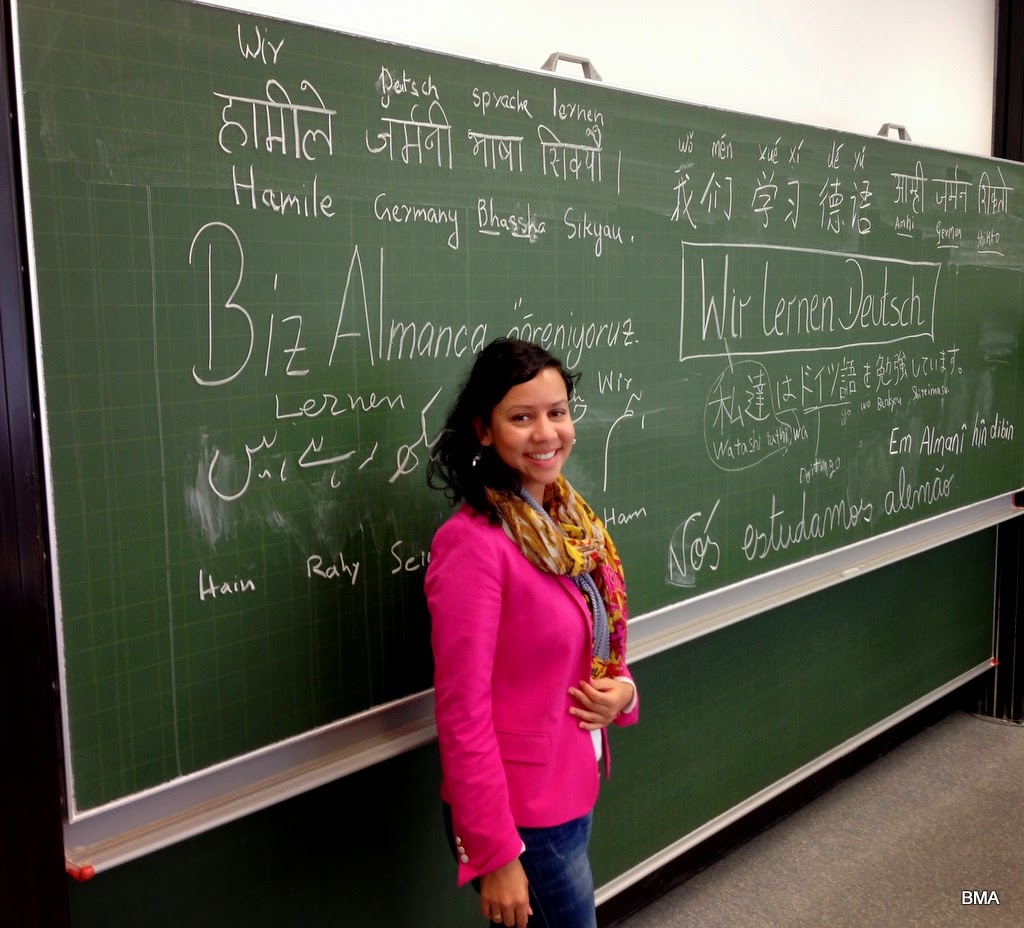 Wir
Deutsch sprache lernen
हामीले जर्मनी भाषा सिक्यौ ।
Hamile Germany Bhassha Sikyau.
Biz Almanca
Lernen Wir
Hain Rahy Ham
wǒ mén xué xí dé yǔ
我们 学习 德语
आम्ही जर्मन
Amhi German Shikto
Wir lernen Deutsch
私達はドイツ語を勉強しています。
go wo Benkyu
Watashi tachi, wa
Em Almanî hîn dibin
Nós estudamos alemão.
BMA